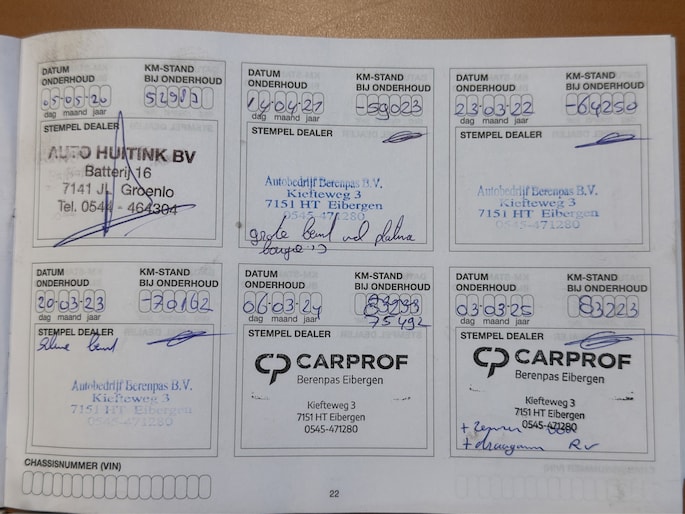 DATUM ONDERHOUD
KM-STAND BIJ ONDERHOUD
05-05-20
dag maand jaar
STEMPEL DEALER
AUTO HUITINK BV
Batterij 16
7141 JL Groenlo
Tel. 0544 - 464304
DATUM ONDERHOUD
KM-STAND BIJ ONDERHOUD
14-04-21
-59023
dag maand jaar
STEMPEL DEALER
Autobedrijf Berenpas B.V.
Kiefteweg 3
7151 HT Eibergen
0545-471280
grote beurt
DATUM ONDERHOUD
KM-STAND BIJ ONDERHOUD
23-03-22
-64250
dag maand jaar
STEMPEL DEALER
Autobedrijf Berenpas B.V.
Kiefteweg 3
7151 HT Eibergen
0545-471280
DATUM ONDERHOUD
KM-STAND BIJ ONDERHOUD
20-03-23
-70162
dag maand jaar
STEMPEL DEALER
beurt
Autobedrijf Berenpas B.V.
Kiefteweg 3
7151 HT Eibergen
0545-471280
DATUM ONDERHOUD
KM-STAND BIJ ONDERHOUD
06-03-24
75492
dag maand jaar
STEMPEL DEALER
CARPROF
Berenpas Eibergen
Kiefteweg 3
7151 HT Eibergen
0545-471280
DATUM ONDERHOUD
KM-STAND BIJ ONDERHOUD
03-03-25
83223
dag maand jaar
STEMPEL DEALER
CARPROF
Berenpas Eibergen
Kiefteweg 3
7151 HT Eibergen
0545-471280
+ draagarm RV
CHASSISNUMMER (VIN)
22